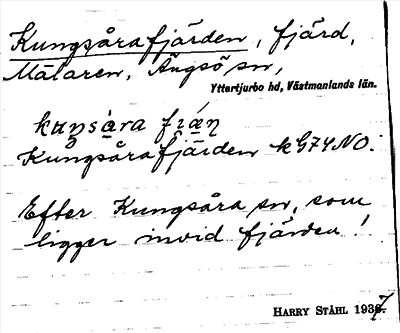 Kungsårafjärden, fjärd,
Mälaren, Ängsö sn,
Yttertjurbo hd, Västmanlands län.
kuŋsàra fiáŋ
Kungsårafjärden kG74NO.
Efter Kungsåra sn, som
ligger invid fjärden!
HARRY STÅHL 1937.